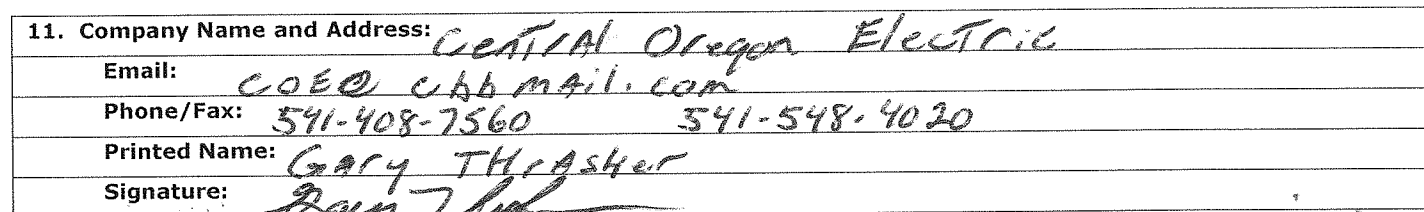 11. Company Name and Address: Central Oregon Electric
Email: COE@ cbbmail.com
Phone/Fax: 541-408-7560 541-548-4020
Printed Name: Gary THrAsher
Signature: